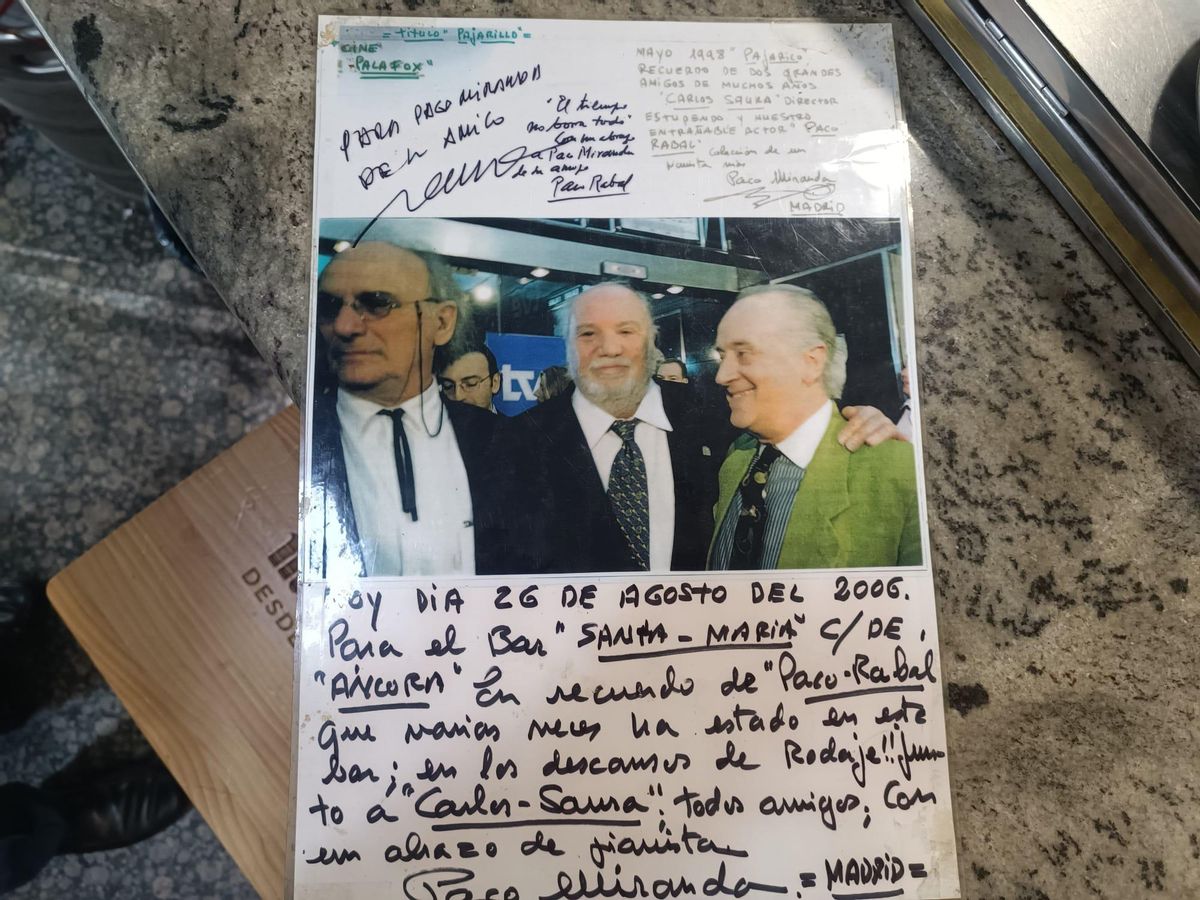 =TITULO "PAJARILLO"=
CINE
"PALAFOX"
PARA PACO MIRANDA
DE SU AMIGO
"El tiempo
no borra todo"
Con un abrazo
a Paco Miranda
de su amigo
Paco Rabal
MAYO 1998 "PAJARICO"
RECUERDO DE DOS GRANDES
AMIGOS DE MUCHOS AÑOS
"CARLOS SAURA" DIRECTOR
ESTUPENDO Y NUESTRO
ENTRAÑABLE ACTOR "PACO
RABAL" Colección de un
pianista más
Paco Miranda
MADRID
tv
OY DIA 26 DE AGOSTO DEL 2006.
Para el Bar "SANTA-MARIA" C/DE.
"ANCORA" En recuerdo de "Paco-Rabal
que varias veces ha estado en este
bar; en los descansos de Rodaje!! jun
to a "Carlos-Saura"! todos amigos; Con
un abrazo de pianista
Paco Miranda .=MADRID=
DESDE